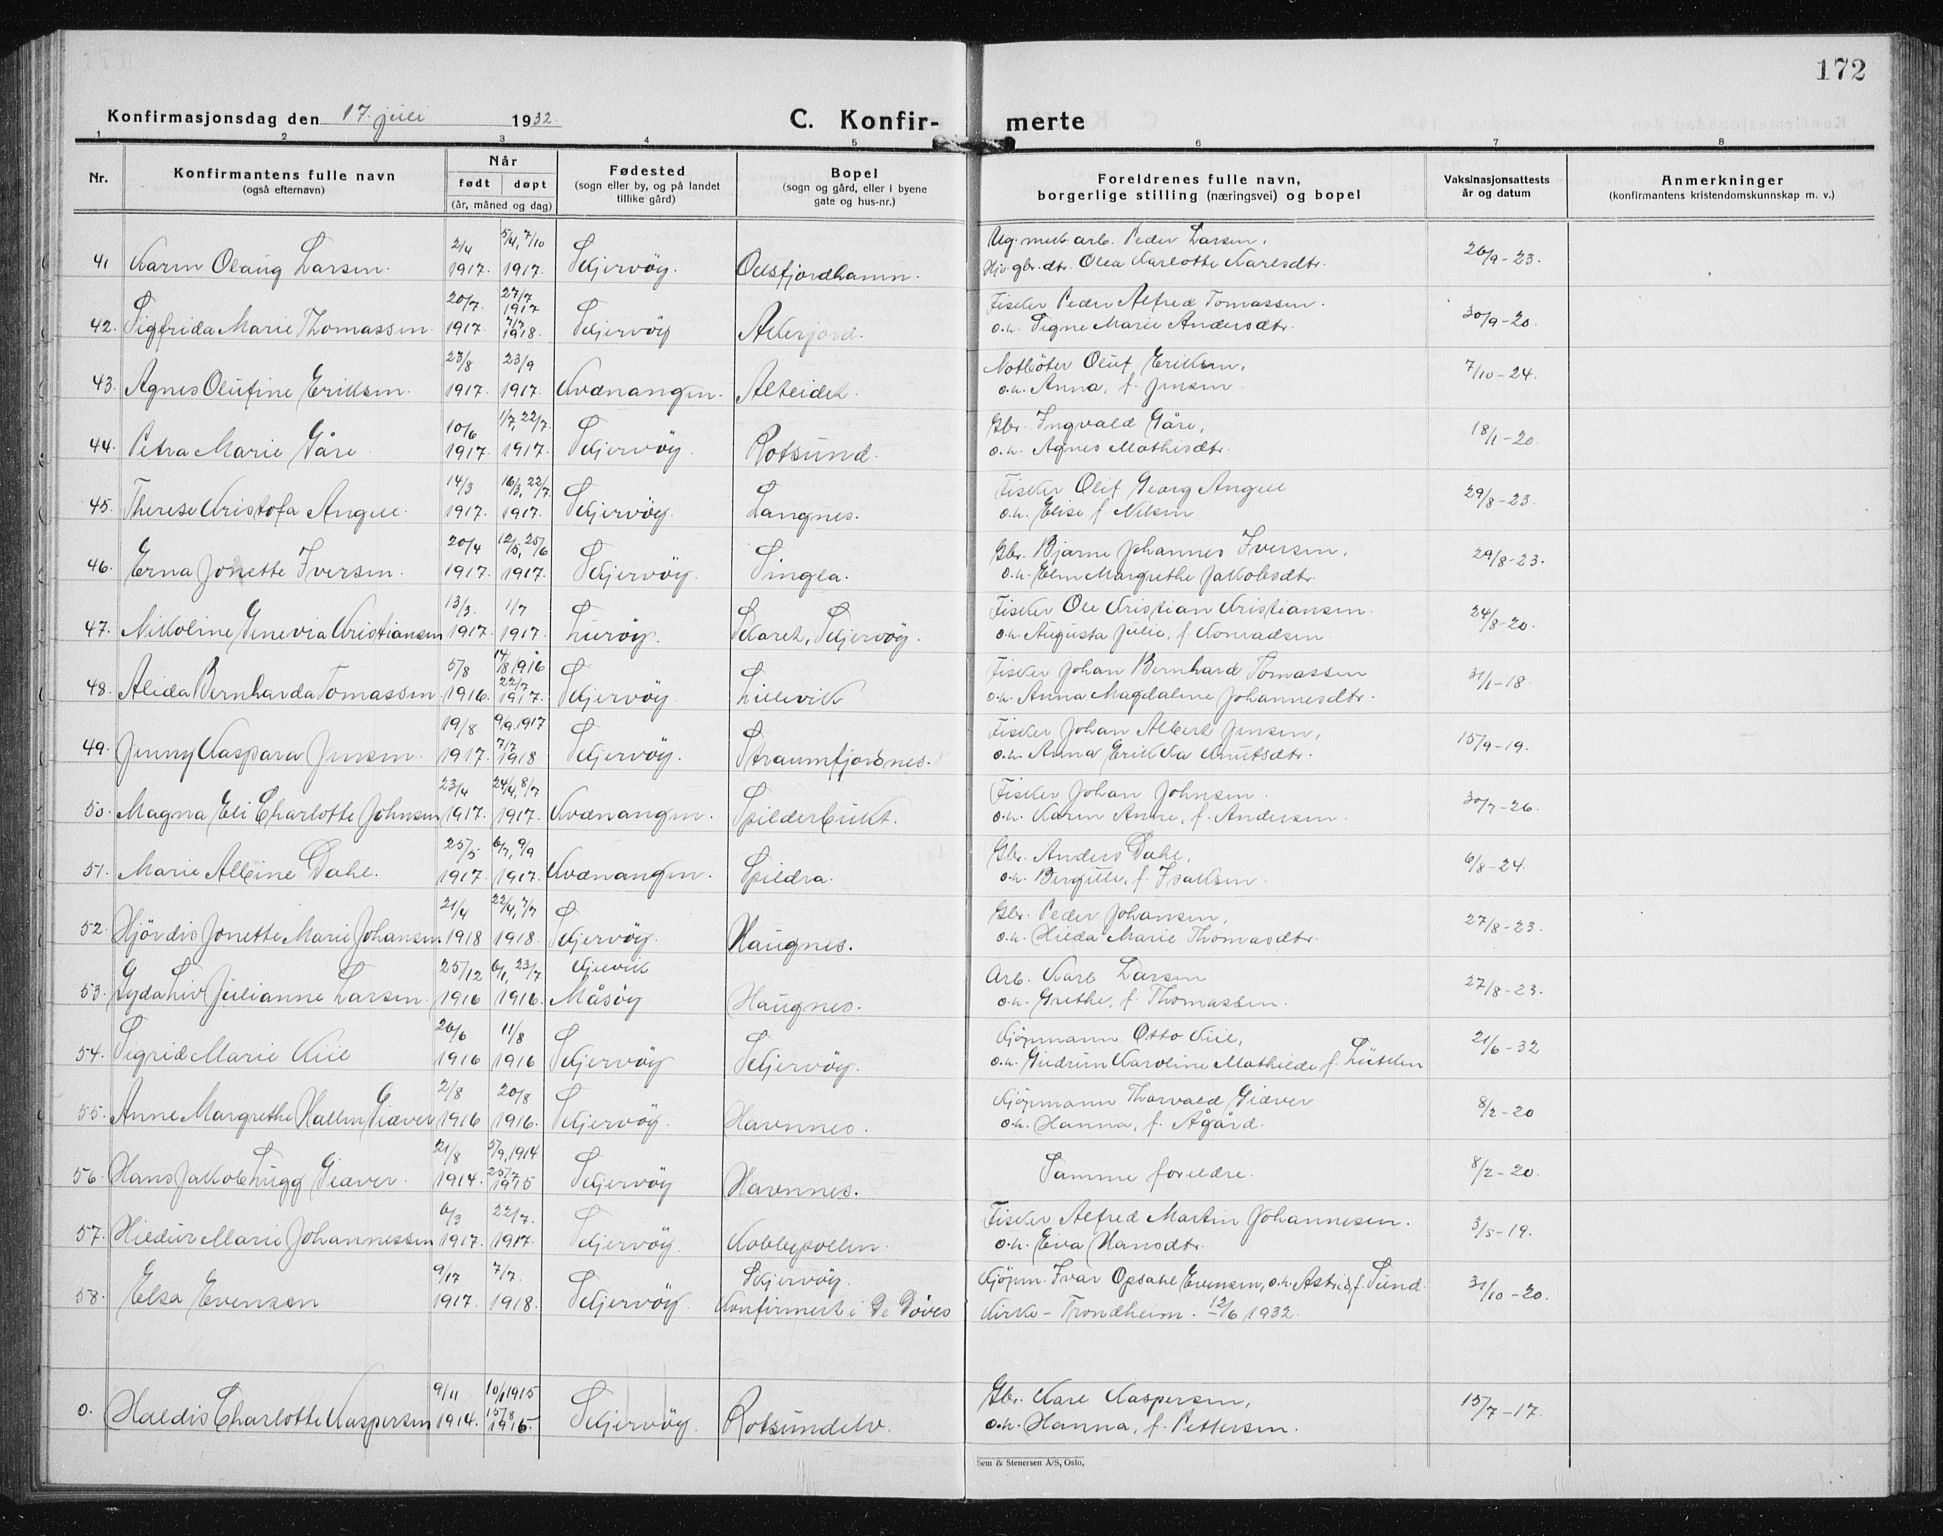 172
Konfirmasjonsdag den 17. juli 1932.
C. Konfir- merte
1 2 3 4 5 6 7 8
Nr.
Konfirmantens fulle navn
(også efternavn)
Når
født døpt
(år, måned og dag)
Fødested
(sogn eller by, og på landet
tillike gård)
Bopel
(sogn og gård, eller i byene
gate og hus-nr.)
Foreldrenes fulle navn,
borgerlige stilling (næringsvei) og bopel
Vaksinasjonsattests
år og datum
Anmerkninger
(konfirmantens kristendomskunnskap m. v.)
2/4 5/4, 7/10 Ug. arb. Peder Larsen,
41 Karin Olaug Larsen. 1917. 1917. Skjervöy. Oksfjordhamn. gbr.dtr. Olea Karlotte Karlsdtr. 26/9-23.
20/7. 27/7 1917 Fisker Peder Alfred Tomassen.
42. Sigfrida Marie Thomassen. 1917. 7/7 1918. Skjervöy Akkerfjord. o.h. Signe Marie Andersdtr. 30/9-20.
23/8 23/9 Notböter Oluf Eriksen,
43. Agnes Olufine Eriksen. 1917. 1917. Kvænangen. Alteidet. o.h. Anna, f. Jensen 7/10-24.
10/6 1/7, 22/7. Gbr. Ingvald Gåre,
44. Petra Marie Gåre. 1917. 1917. Skjervöy. Rotsund. o.h. Agnes Mathisdtr. 18/1-20.
14/3 16/3, 22/7. Fisker Olif Georg Angell
45. Therese Kristofa Angell. 1917. 1917. Skjervöy. Langnes. o.h. Elise f. Nilsen 29/8-23.
20/4 12/5, 25/6 Gbr. Bjarne Johannes Iversen,
46. Erna Jonette Iversen. 1917. 1917. Skjervöy. Singla. o.h. Elen Margrethe Jakobsdtr. 29/8-23.
13/3. 1/7 Fisker Ole Kristian Kristiansen.
47. Nikoline Genevia Kristiansen 1917. 1917. Luröy. Skaret, Skjervöy. o.h. Augusta Julie, f. Konradsen. 24/8-20.
5/8 14/8 1916 Fisker Johan Bernhard Tomassen
48. Alida Bernharda Tomassen 1916. 22/7 1917. Skjervöy. Lillevik o.h. Anna Magdalene Johannesdtr. 31/1-18.
19/8 9/9.1917 Fisker Johan Albert Jensen,
49. Jenny Kaspara Jensen. 1917. 7/7 1918 Skjervöy. Straumfjordnes. o.h. Anna Erikka Knutsdtr. 15/9-19.
23/4 24/4, 8/7 Fisker Johan Johnsen.
50. Magna Eli Charlotte Johnsen 1917. 1917. Kvænangen. Spilderbukt. o.h. Karen Anne, f. Andersen. 30/7-26.
25/5 6/7, 9/9 Gbr. Anders Dahl,
51. Marie Albine Dahl. 1917. 1917. Kvænangen. Spildra. o.h. Bergitte, f. Isaksen. 6/8-24.
21/4 22/4, 7/7 Gbr. Peder Johansen,
52. Hjördis Jonette Marie Johansen. 1918 1918. Skjervöy. Haugnes. o.h. Hilda Marie Thomasdtr. 27/8-23.
25/12 6/1, 23/7 Arb. Karl Larsen
53. Gyda Liv Julianne Larsen. 1916 1916. Måsöy Haugnes. o.h. Grethe, f. Thomassen. 27/8-23.
26/6 11/8 Kjöpmann Otto Kiil,
54. Sigrid Marie Kiil 1916 1916 Skjervöy Skjervöy. o.h. Gudrun Karoline Mathilde f. Lütcken 21/6-32
2/8 20/8 Kjöpmann Thorvald Giæver
55. Anne Margrethe Hallen Giæver 1916 1916. Skjervöy. Havnnes. o.h. Hanna, f. Ågård. 8/2-20
21/8 5/9, 1914
56. Hans Jakob Lugg Giæver. 1914. 25/7 1915 Skjervöy Havnnes. Samme foreldre. 8/2-20.
6/3 22/7. Fisker Alfred Martin Johannesen.
57. Hildur Marie Johannessen 1917. 1917. Skjervöy. Kobbepollen. o.h. Eva Hansdtr. 3/5-19.
9/17 7/7. Skjervöy. Kjöpm. Ivar Opsahl Evensen, o.h. Astrid, f. Sund.
58. Elsa Evensen 1917. 1918. Skjervöy. Konfirmert i De Döves Kirke - Trondheim. 12/6 1932. 31/10-20.
9/11 10/1 1915 Gbr. Kare Kaspersen,
0. Haldis Charlotte Kaspersen 1914. 15/8 1915. Skjervöy. Rotsundelv. o.h. Hanna, f. Pettersen. 15/7-17.
Sem & Stenersen A/S, Oslo.